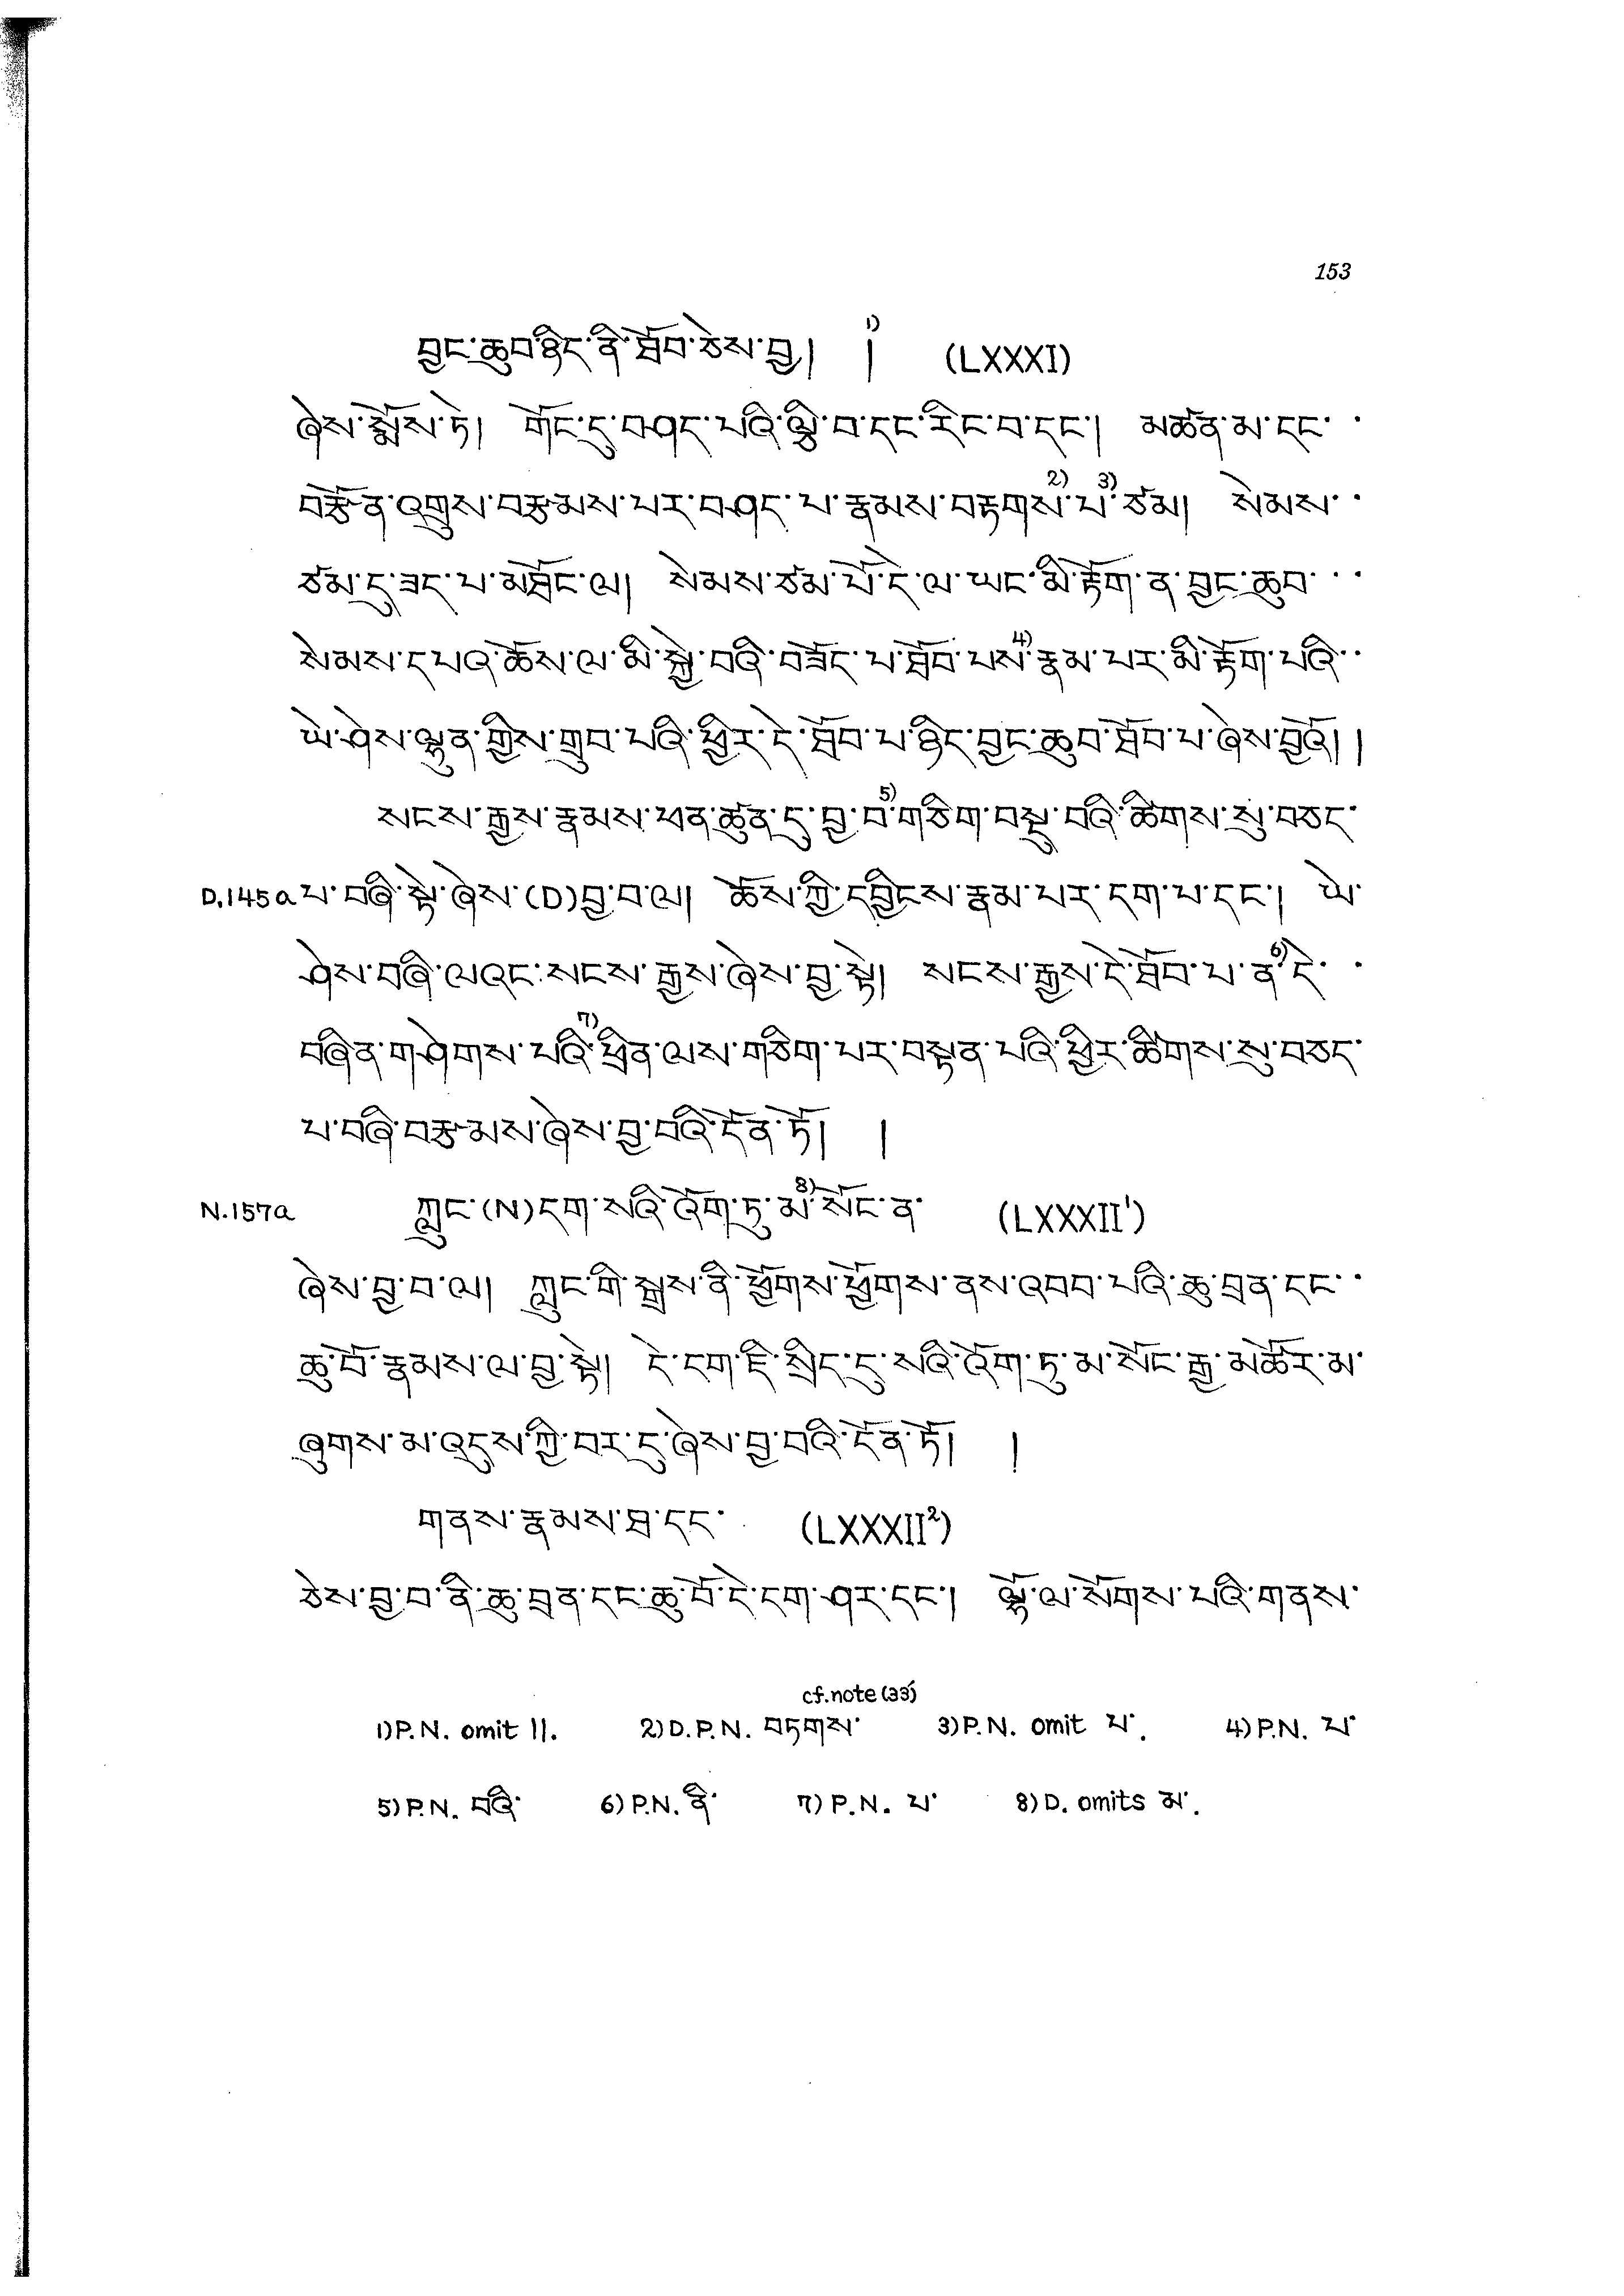 153
བྱང་ཆུབ་ཉིད་ནི་ཐོབ་ཅེས་བྱ། །1) (LXXXI)
ཞེས་སྨོས་ཏེ། གོང་དུ་བཤད་པའི་ལྕི་བ་དང་རིང་བ་དང་། མཚན་མ་དང་ ·
བརྩོན་འགྲུས་བརྩམས་པར་བཤད་པ་རྣམས་བརྟགས2)་པ3)་ཙམ། སེམས་ ·
ཙམ་དུ་ཟད་པ་མཐོང་ལ། སེམས་ཙམ་པོ་དེ་ལ་ཡང་མི་རྟོག་ན་བྱང་ཆུབ་ · ·
སེམས་དཔའ་ཆོས་ལ་མི་སྐྱེ་བའི་བཟོད་པ་ཐོབ་པས4)་རྣམ་པར་མི་རྟོག་པའི་ ·
ཡེ་ཤེས་ལྷུན་གྱིས་གྲུབ་པའི་ཕྱིར་དེ་ཐོབ་པ་ཉིད་བྱང་ཆུབ་ཐོབ་པ་ཞེས་བྱའོ། །
སངས་རྒྱས་རྣམས་ཕན་ཚུན་དུ་བྱ་བ5)་གཅིག་བསྡུ་བའི་ཚིགས་སུ་བཅད་
D.145a པ་བཞི་སྟེ་ཞེས་(D)བྱ་བ་ལ། ཆོས་ཀྱི་དབྱིངས་རྣམ་པར་དག་པ་དང་། ཡེ་
ཤེས་བཞི་ལའང་སངས་རྒྱས་ཞེས་བྱ་སྟེ། སངས་རྒྱས་དེ་ཐོབ་པ་ན6)་དེ་ ·
བཞིན་གཤེགས་པའི7)་ཕྲིན་ལས་གཅིག་པར་བསྟན་པའི་ཕྱིར་ཚིགས་སུ་བཅད་
པ་བཞི་བརྩམས་ཞེས་བྱ་བའི་དོན་ཏོ། །
N.157a ཀླུང་(N)དག་སའི་འོག་ཏུ་མ8)་སོང་ན་ (LXXXII¹)
ཞེས་བྱ་བ་ལ། ཀླུང་གི་སྒྲས་ནི་ཕྱོགས་ཕྱོགས་ནས་འབབ་པའི་ཆུ་བྲན་དང་ ·
ཆུ་བོ་རྣམས་ལ་བྱ་སྟེ། དེ་དག་ཇི་སྲིད་དུ་སའི་འོག་ཏུ་མ་སོང་རྒྱ་མཚོར་མ་
ཞུགས་མ་འདུས་ཀྱི་བར་དུ་ཞེས་བྱ་བའི་དོན་ཏོ། །
གནས་རྣམས་ཐ་དད་ (LXXXII²)
ཅེས་བྱ་བ་ནི་ཆུ་བྲན་དང་ཆུ་བོ་དེ་དག་ཤར་དང་། ལྷོ་ལ་སོགས་པའི་གནས་
cf.note(33)
1)P.N. omit ||. 2)D.P.N. བཏགས་ 3)P.N. omit པ་. 4)P.N. པ་
5)P.N. བའི་ 6)P.N. ནི་ 7)P.N. པ་ 8)D. omits མ་.